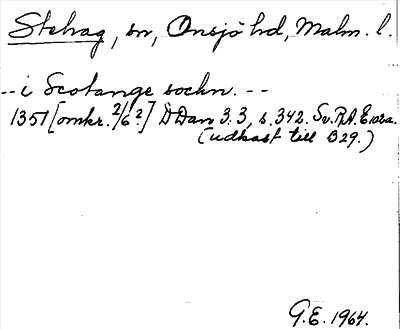 Stehag, sn, Onsjö hd, Malm. l.
-- i Scotange sockn. --
1351 [omkr. 2/6?] DDan 3.3, s. 342. Sv. R.A. E102a.
(udkast till B29.)
G.E. 1964.